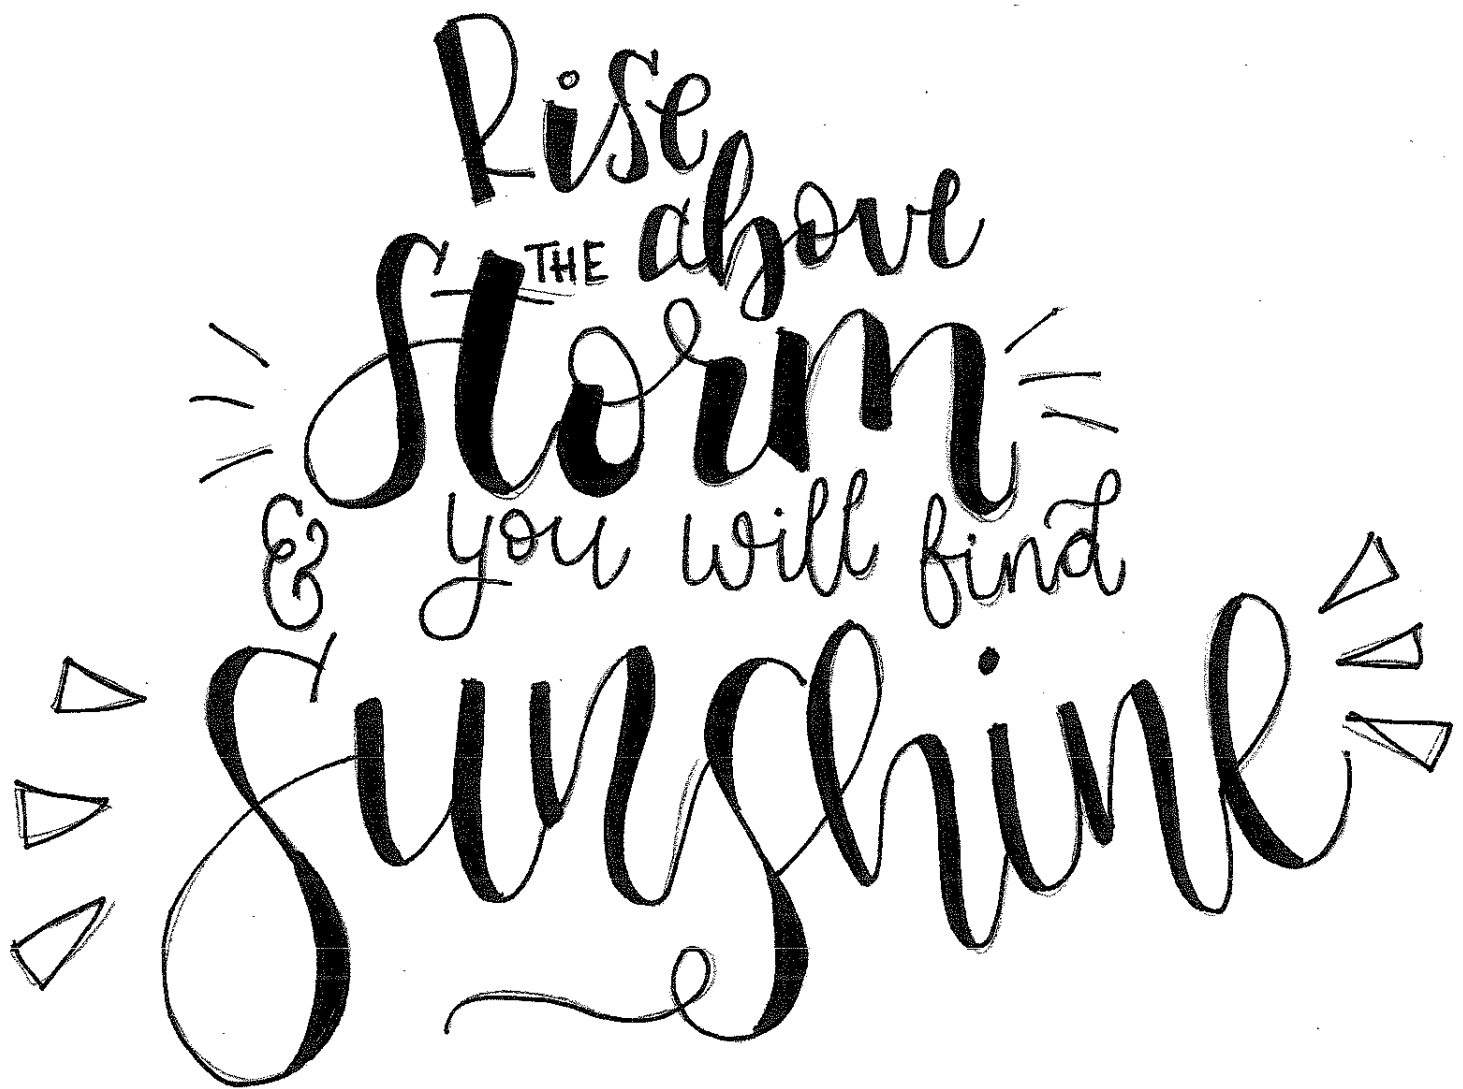 Rise
above
THE
Storm
& you will find
Sunshine